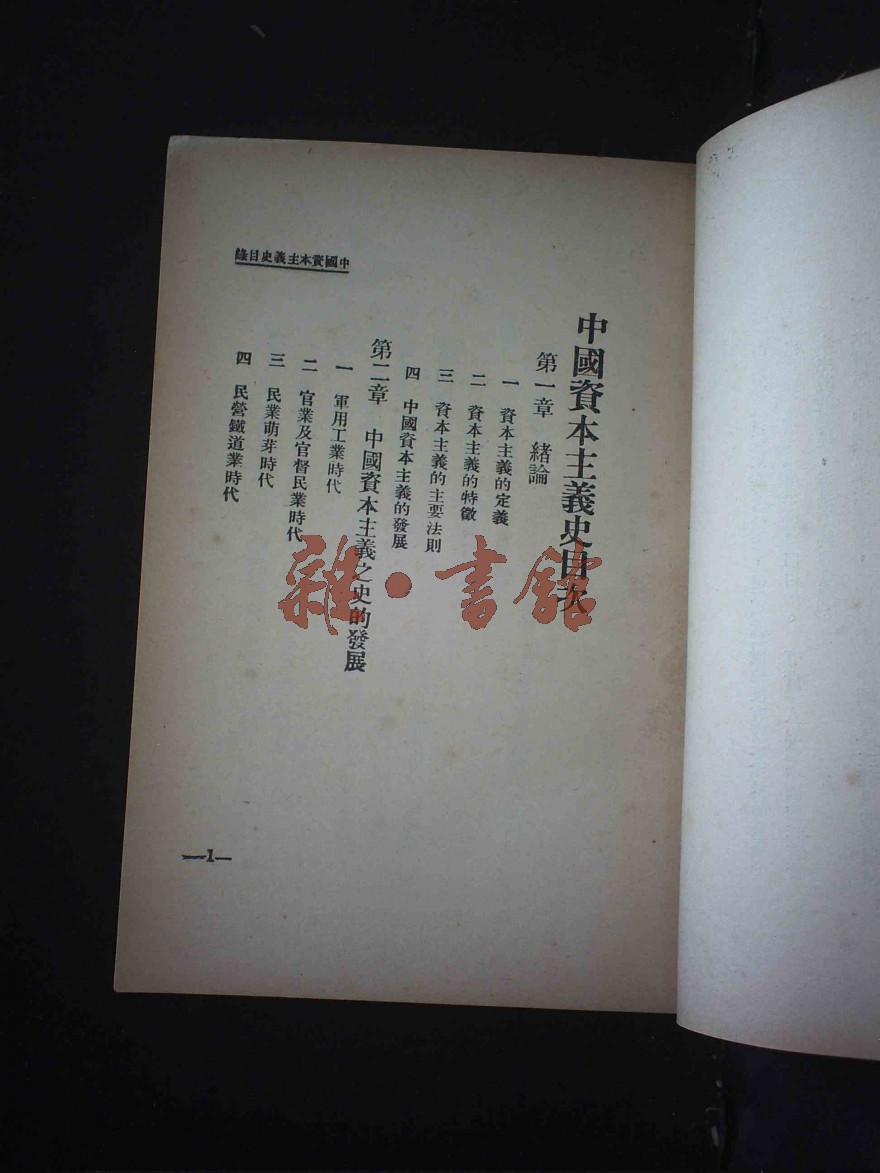 中國資本主義史目錄
中國資本主義史目次
第一章　緒論
一　資本主義的定義
二　資本主義的特徵
三　資本主義的主要法則
四　中國資本主義的發展
第二章　中國資本主義之史的發展
一　軍用工業時代
二　官業及官督民業時代
三　民業萌芽時代
四　民營鐵道業時代
—1—
雜·書館